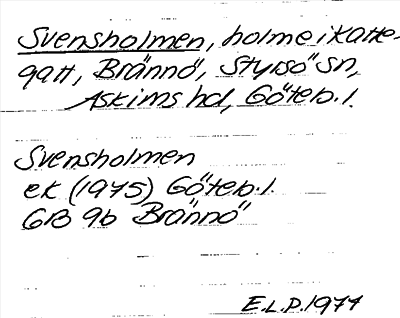 Svensholmen, holme i Katte-
gatt, Brännö, Styrsö sn,
Askims hd, Göteb. l.
Svensholmen
ek (1975) Göteb. l.
6B 9b Brännö
E.L.D. 1977